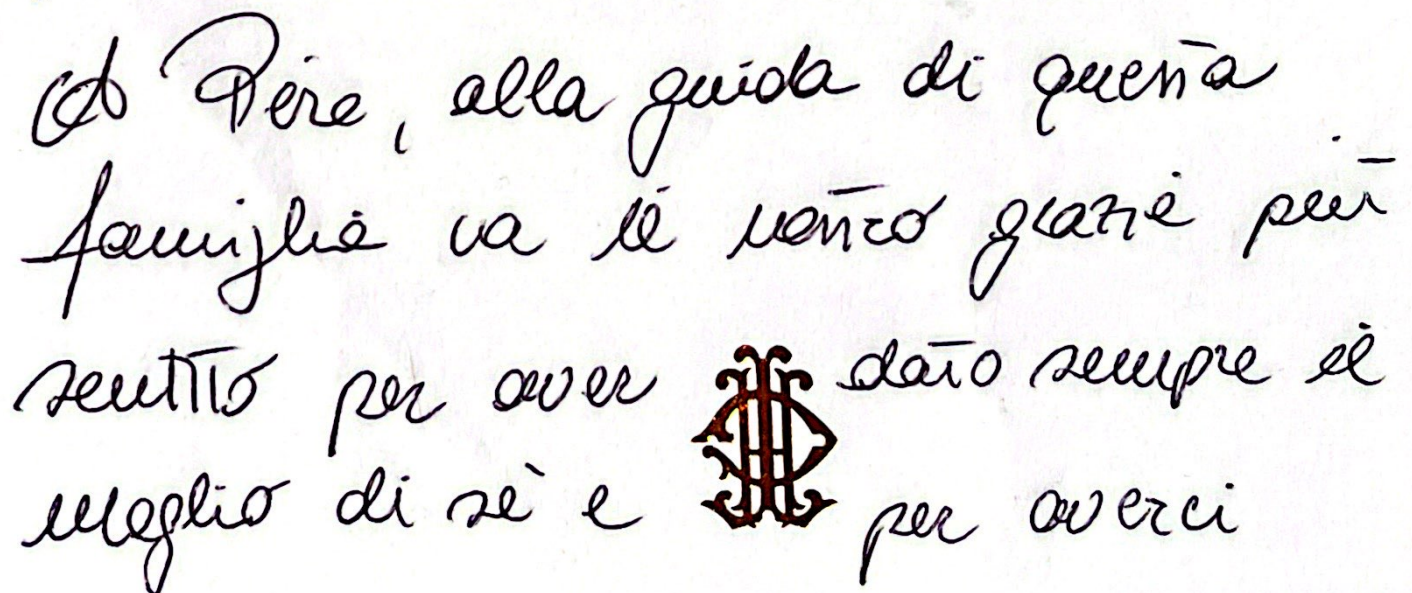 A Père, alla guida di questa
famiglia va il nostro grazie più
sentito per aver dato sempre il
meglio di sè e per averci